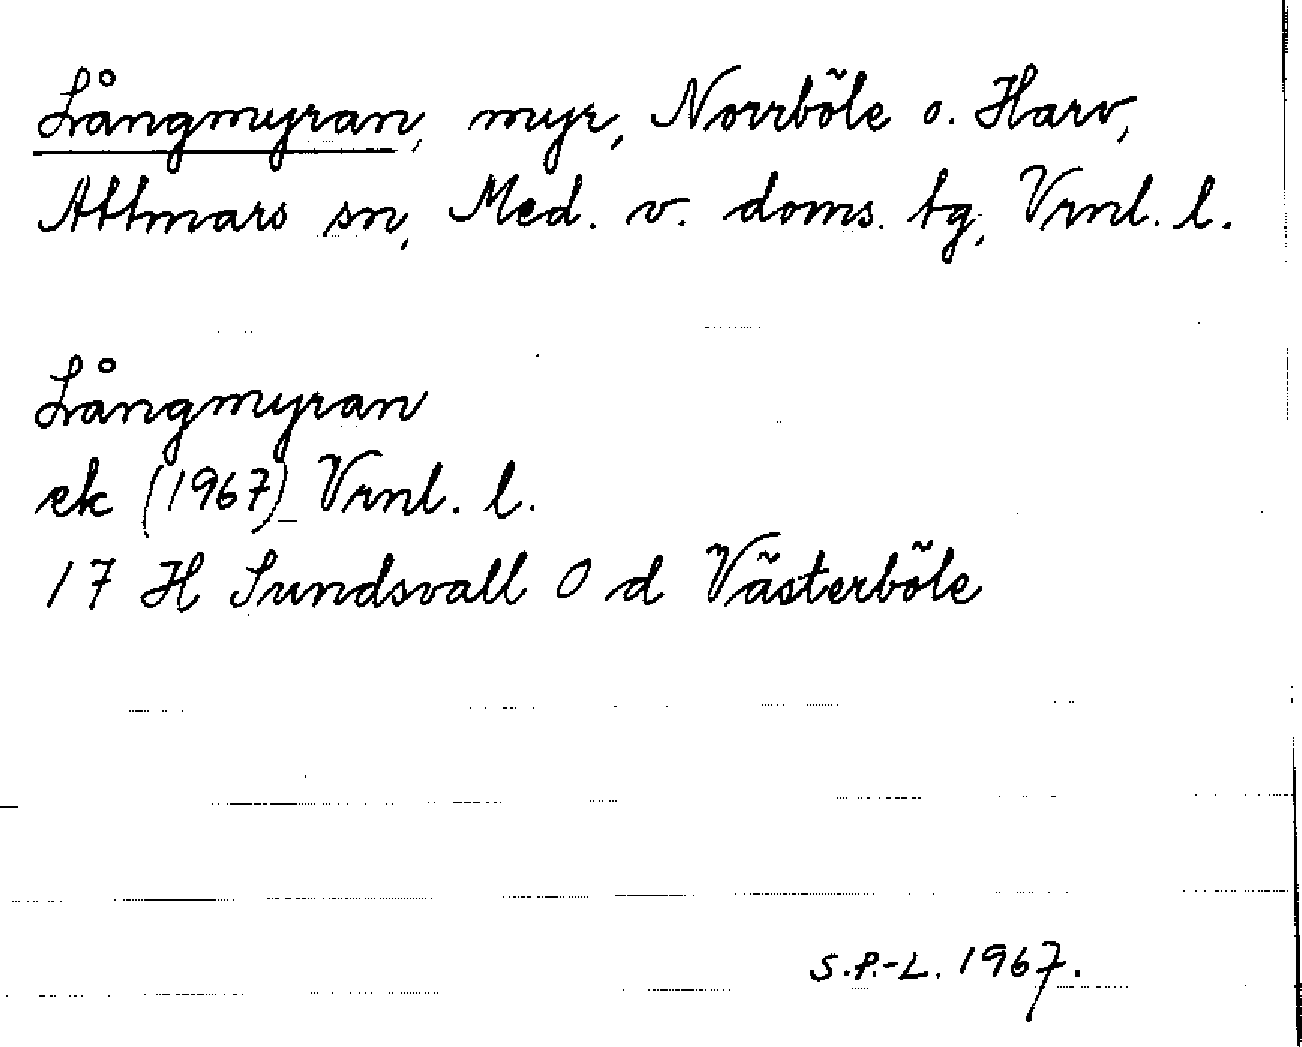 Långmyran, myr, Norrböle o. Harv,
Attmars sn, Med. v. doms. tg, Vrnl. l.
Långmyran
ek (1967) Vrnl. l.
17 H Sundsvall 0 d Västerböle
S.P.-L. 1967.